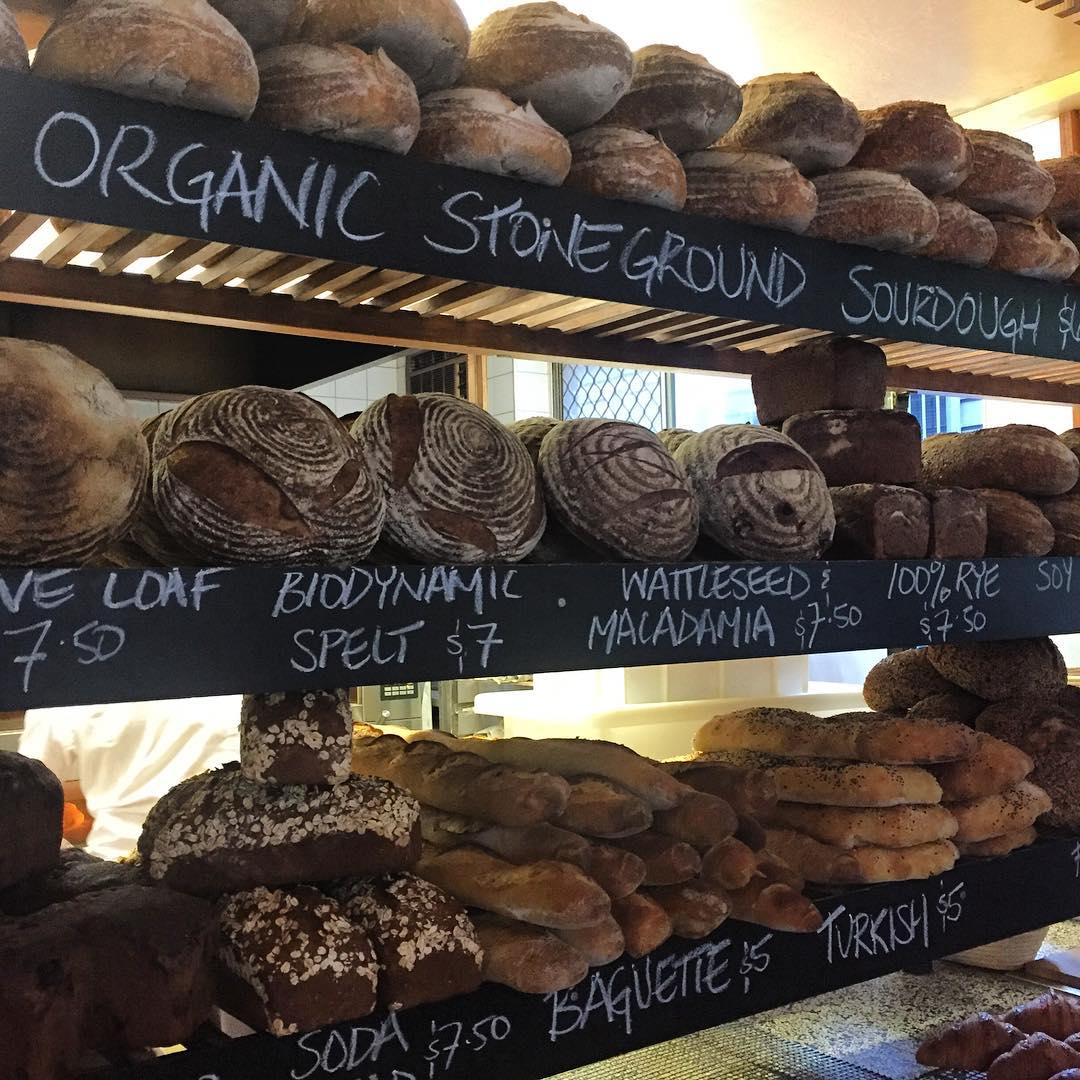 ORGANIC STONEGROUND SOURDOUGH
VE LOAF
7.50
BIODYNAMIC
SPELT $7
WATTLESEED &
MACADAMIA $7.50
100% RYE
$7.50
SOY
SODA $7.50
BAGUETTE $5
TURKISH $5